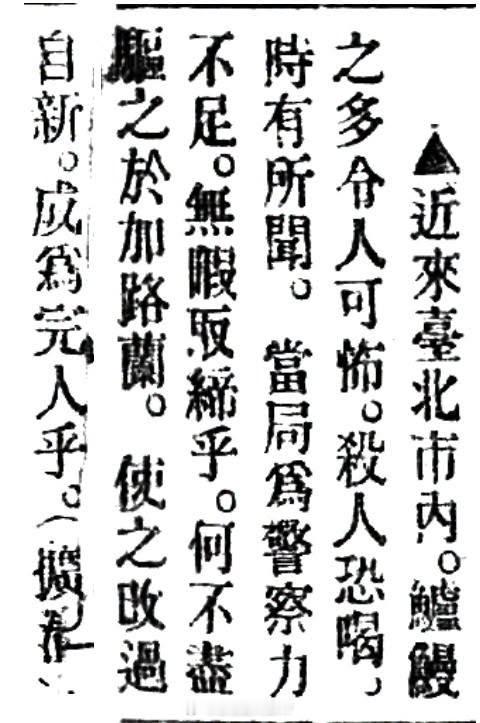 ▲近來臺北市內。鱸鰻
之多令人可怖。殺人恐喝。
時有所聞。當局爲警察力
不足。無暇取締乎。何不盡
驅之於加路蘭。使之改過
自新。成爲完人乎。(擴